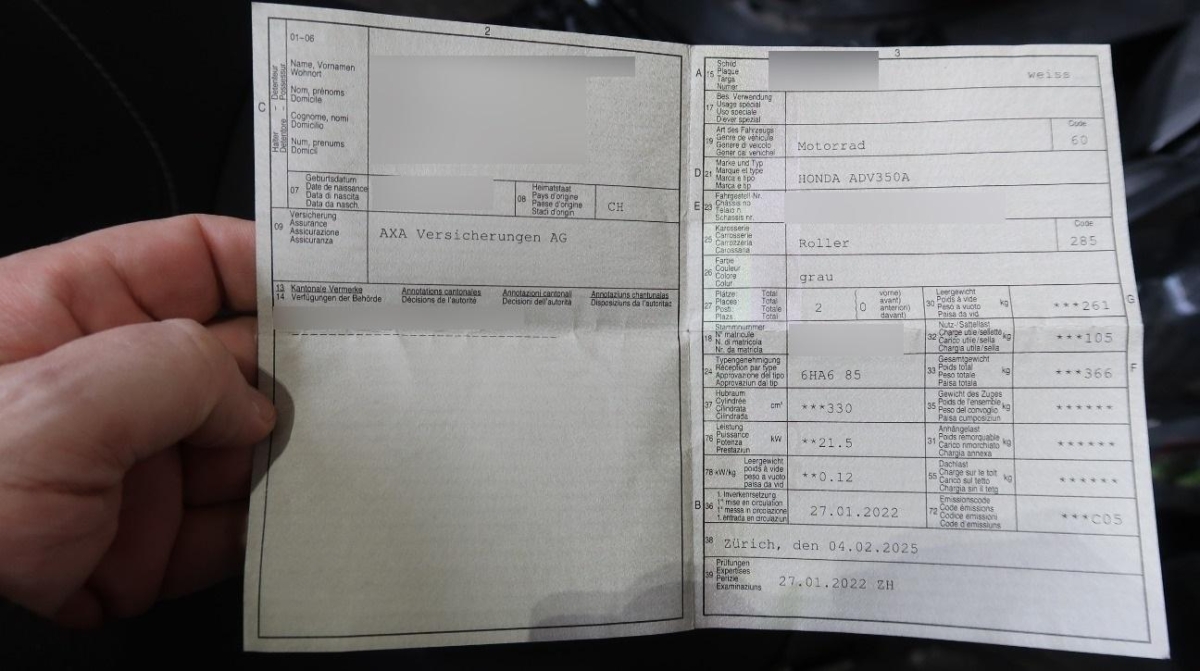 2
01-06
C
Halter – Détenteur
Detentore – Possessur
Name, Vornamen
Wohnort
Nom, prénoms
Domicile
Cognome, nomi
Domicilio
Num, prenums
Domicil
07
Geburtsdatum
Date de naissance
Data di nascita
Data da nasch.
08
Heimatstaat
Pays d'origine
Paese d'origine
Stadi d'origin
CH
09
Versicherung
Assurance
Assicurazione
Assicuranza
AXA Versicherungen AG
13 Kantonale Vermerke Annotations cantonales Annotazioni cantonali Annotaziuns chantunalas
14 Verfügungen der Behörde Décisions de l'autorité Decisioni dell'autorità Disposiziuns da l'autoritad
3
A
15
Schild
Plaque
Targa
Numer
weiss
17
Bes. Verwendung
Usage spécial
Uso speciale
Diever spezial
19
Art des Fahrzeugs
Genre de véhicule
Genere di veicolo
Gener da vehichel
Motorrad
Code
60
D
21
Marke und Typ
Marque et type
Marca e tipo
Marca e tip
HONDA ADV350A
E
23
Fahrgestell Nr.
Châssis no
Telaio n.
Schassis nr.
25
Karosserie
Carrosserie
Carrozzeria
Carossaria
Roller
Code
285
26
Farbe
Couleur
Colore
Colur
grau
27
Plätze: Total
Places: Total
Posti: Totale
Plazs: Total
2
(0
vorne)
avant)
anteriori)
davant)
30
Leergewicht
Poids à vide
Peso a vuoto
Paisa da vid
kg
***261
G
18
Stammnummer
N° matricule
N. di matricola
Nr. da matricla
32
Nutz-/Sattellast
Charge utile/sellette
Carico utile/sella
Chargia utila/sella
kg
***105
24
Typengenehmigung
Réception par type
Approvazione del tipo
Approvaziun dal tip
6HA6 85
33
Gesamtgewicht
Poids total
Peso totale
Paisa totala
kg
***366
F
37
Hubraum
Cylindrée
Cilindrata
Cilindrada
cm³
***330
35
Gewicht des Zuges
Poids de l'ensemble
Peso del convoglio
Paisa cumposiziun
kg
******
76
Leistung
Puissance
Potenza
Prestaziun
kW
**21.5
31
Anhängelast
Poids remorquable
Carico rimorchiato
Chargia annexa
kg
******
78 kW/kg
Leergewicht
poids à vide
peso a vuoto
paisa da vid
**0.12
55
Dachlast
Charge sur le toit
Carico sul tetto
Chargia sin il tetg
kg
******
B
36
1. Inverkehrsetzung
1re mise en circulation
1a messa in circolazione
1. entrada en circulaziun
27.01.2022
72
Emissionscode
Code émissions
Codice emissioni
Code d'emissiuns
***C05
38
Zürich, den 04.02.2025
39
Prüfungen
Expertises
Perizie
Examinaziuns
27.01.2022 ZH